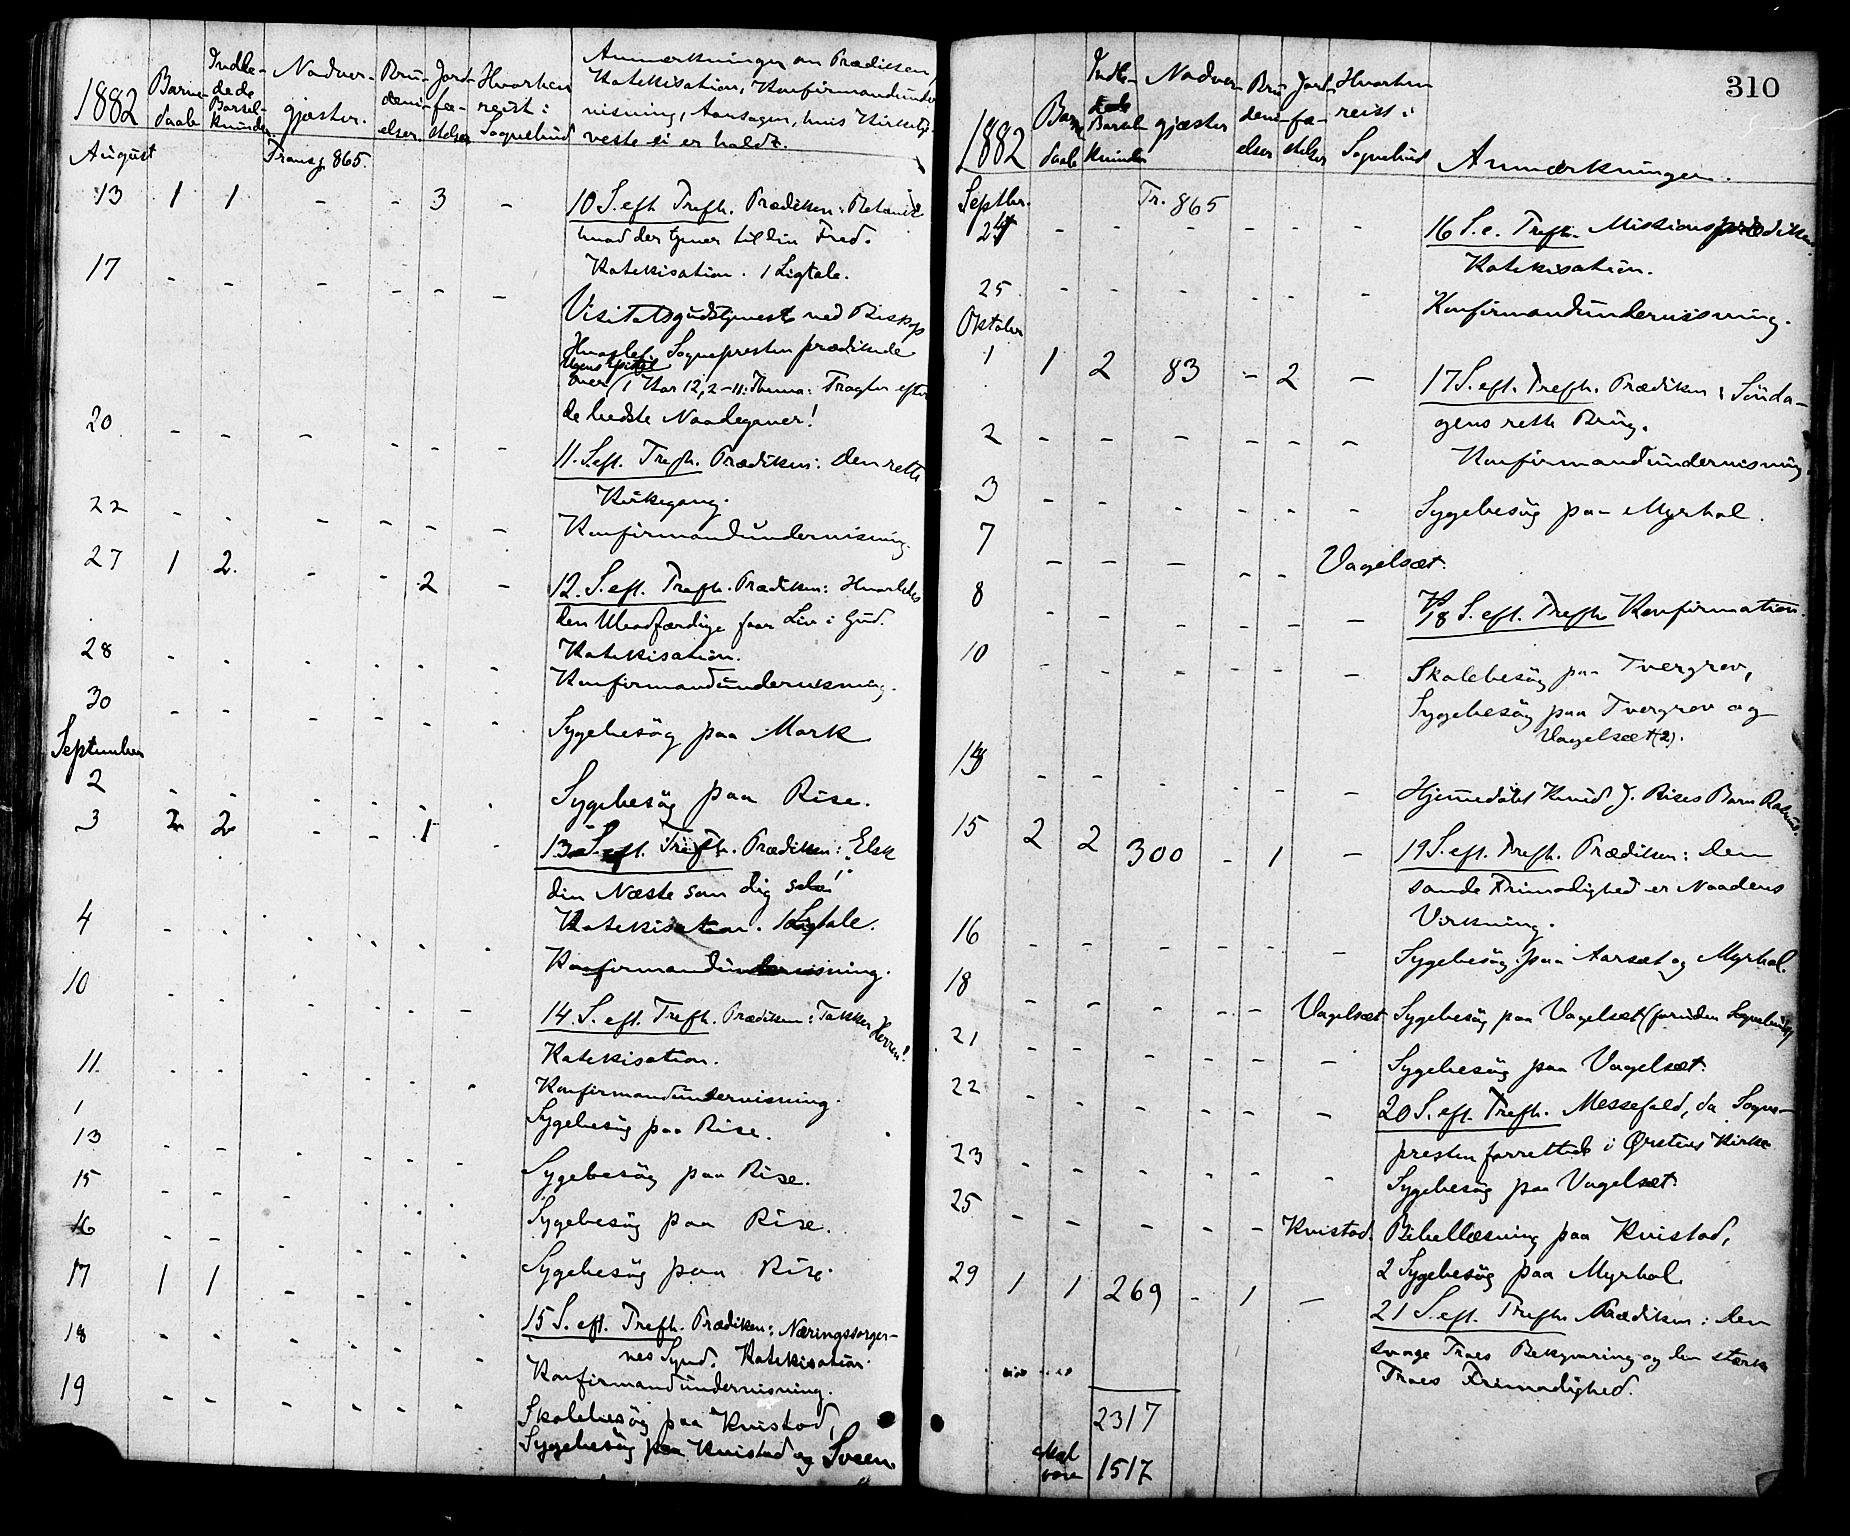 1882
Barne-
daab
Indle-
dede
Barsel-
kvinder
Nadver-
gjæster.
Bru-
devi-
elser
Jord-
fæ-
stelser
Hvorhen
reist i
Sognebud
Anmærkninger om Prædiken,
Katekisation, Konfirmandunder-
visning, Aarsager, hvis Kirketje-
neste ei er holdt.
August Transp. 865.
13 1 1 - - 3 - 10 S. eft. Trefh. Prædiken:
hvad der tjener til din Fred.
Katekisation. 1 Ligtale.
17 - - - - - - Visitatsgudstjeneste ved Biskop
Hvoslef. Sognepresten prædikede
over 1 Kor 12, 2-11: Thema: Tragter efter
de bedste Naadegaver!
20 - - - - - - 11. S. eft. Trefh. Prædiken: Den rette
Kirkegang.
22 - - - - - - Konfirmandundervisning.
27 1 2. - - 2 - 12. S. eft. Trefh. Prædiken: Hvorledes
den Ulvadfærdige faar Liv i Gud.
Katekisation.
28 - - - - - - Konfirmandundervisning.
30 - - - - - - Sygebesøg paa Mork
September
2 - - - - - - Sygebesøg paa Rise.
3 2 2 - - 1 13 S. eft. Trefh. Prædiken: "Elsk
din Næste som dig selv!"
Katekisation. 1 Ligtale.
4 - - - - - - Konfirmandundervisning.
10 - - - - - - 14. S. eft. Trefh. Prædiken: Takker Herren!
Katekisation.
11. - - - - - - Konfirmandundervisning.
Sygebesøg paa Rise.
13 - - - - - - Sygebesøg paa Rise.
15 - - - - - - Sygebesøg paa Rise.
16 - - - - - - Sygebesøg paa Rise.
17 1 1 - - - - 15 S. eft. Trefh. Prædiken: Næringssorger-
nes Synd. Katekisation.
18 - - - - - - Konfirmandundervisning.
19 - - - - - - Skolebesøg paa Kvistad,
Sygebesøg paa Kvistad og Sveen
310
1882
Barne
daab
Indle-
dede
Barsel
kvinder
Nadver-
gjæster
Bru-
devi-
elser
Jord-
fæ-
stelser
Hvorhen
reist i
Sognebud
Anmærkninger.
Septbr. Tr. 865
24 - - - - - - 16 S. e. Trefh. Missionsprædiken.
Katekisation.
25 - - - - - - Konfirmandundervisning.
Oktober
1 1 2 83 - 2 - 17 S. eft. Trefh. Prædiken: Sönda-
gens rette Brug.
2 - - - - - - Konfirmandundervisning.
3 - - - - - - Sygebesøg paa Myrhol.
7 - - - - - Vagelsæt.
8 - - - - - - 18 S. eft. Trefh. Konfirmation.
10 - - - - - - Skolebesøg paa Tvergrov,
Sygebesøg paa Tvergrov og
Vagelsæt (2).
13 - - - - - - Hjemmedøbt Knud J. Rises Barn
15 2 2 300 - 1 - 19 S. eft. Trefh. Prædiken: Den
sande Frimodighed er Naadens
Virkning.
16 - - - - - - Sygebesøg paa Aarsæt og Myrhol.
18 - - - - - Vagelsæt Sygebesøg paa Vagelsæt (foruden Sognebud)
21 - - - - - - Sygebesøg paa Vagelsæt.
22 - - - - - - 20 S. eft. Trefh. Messefald, da Sogne-
presten forrettede i Ørstens Kirke
23 - - - - - - Sygebesøg paa Vagelsæt.
25 - - - - - Kvistad. Bibellæsning paa Kvistad,
2 Sygebesøg paa Myrhol
29 1 1 269 - 1 - 21 S. eft. Trefh. Prædiken: Den
svage Troes Bekymring og den stærke
Troes Frimodighed.
2317
skal
være 1517